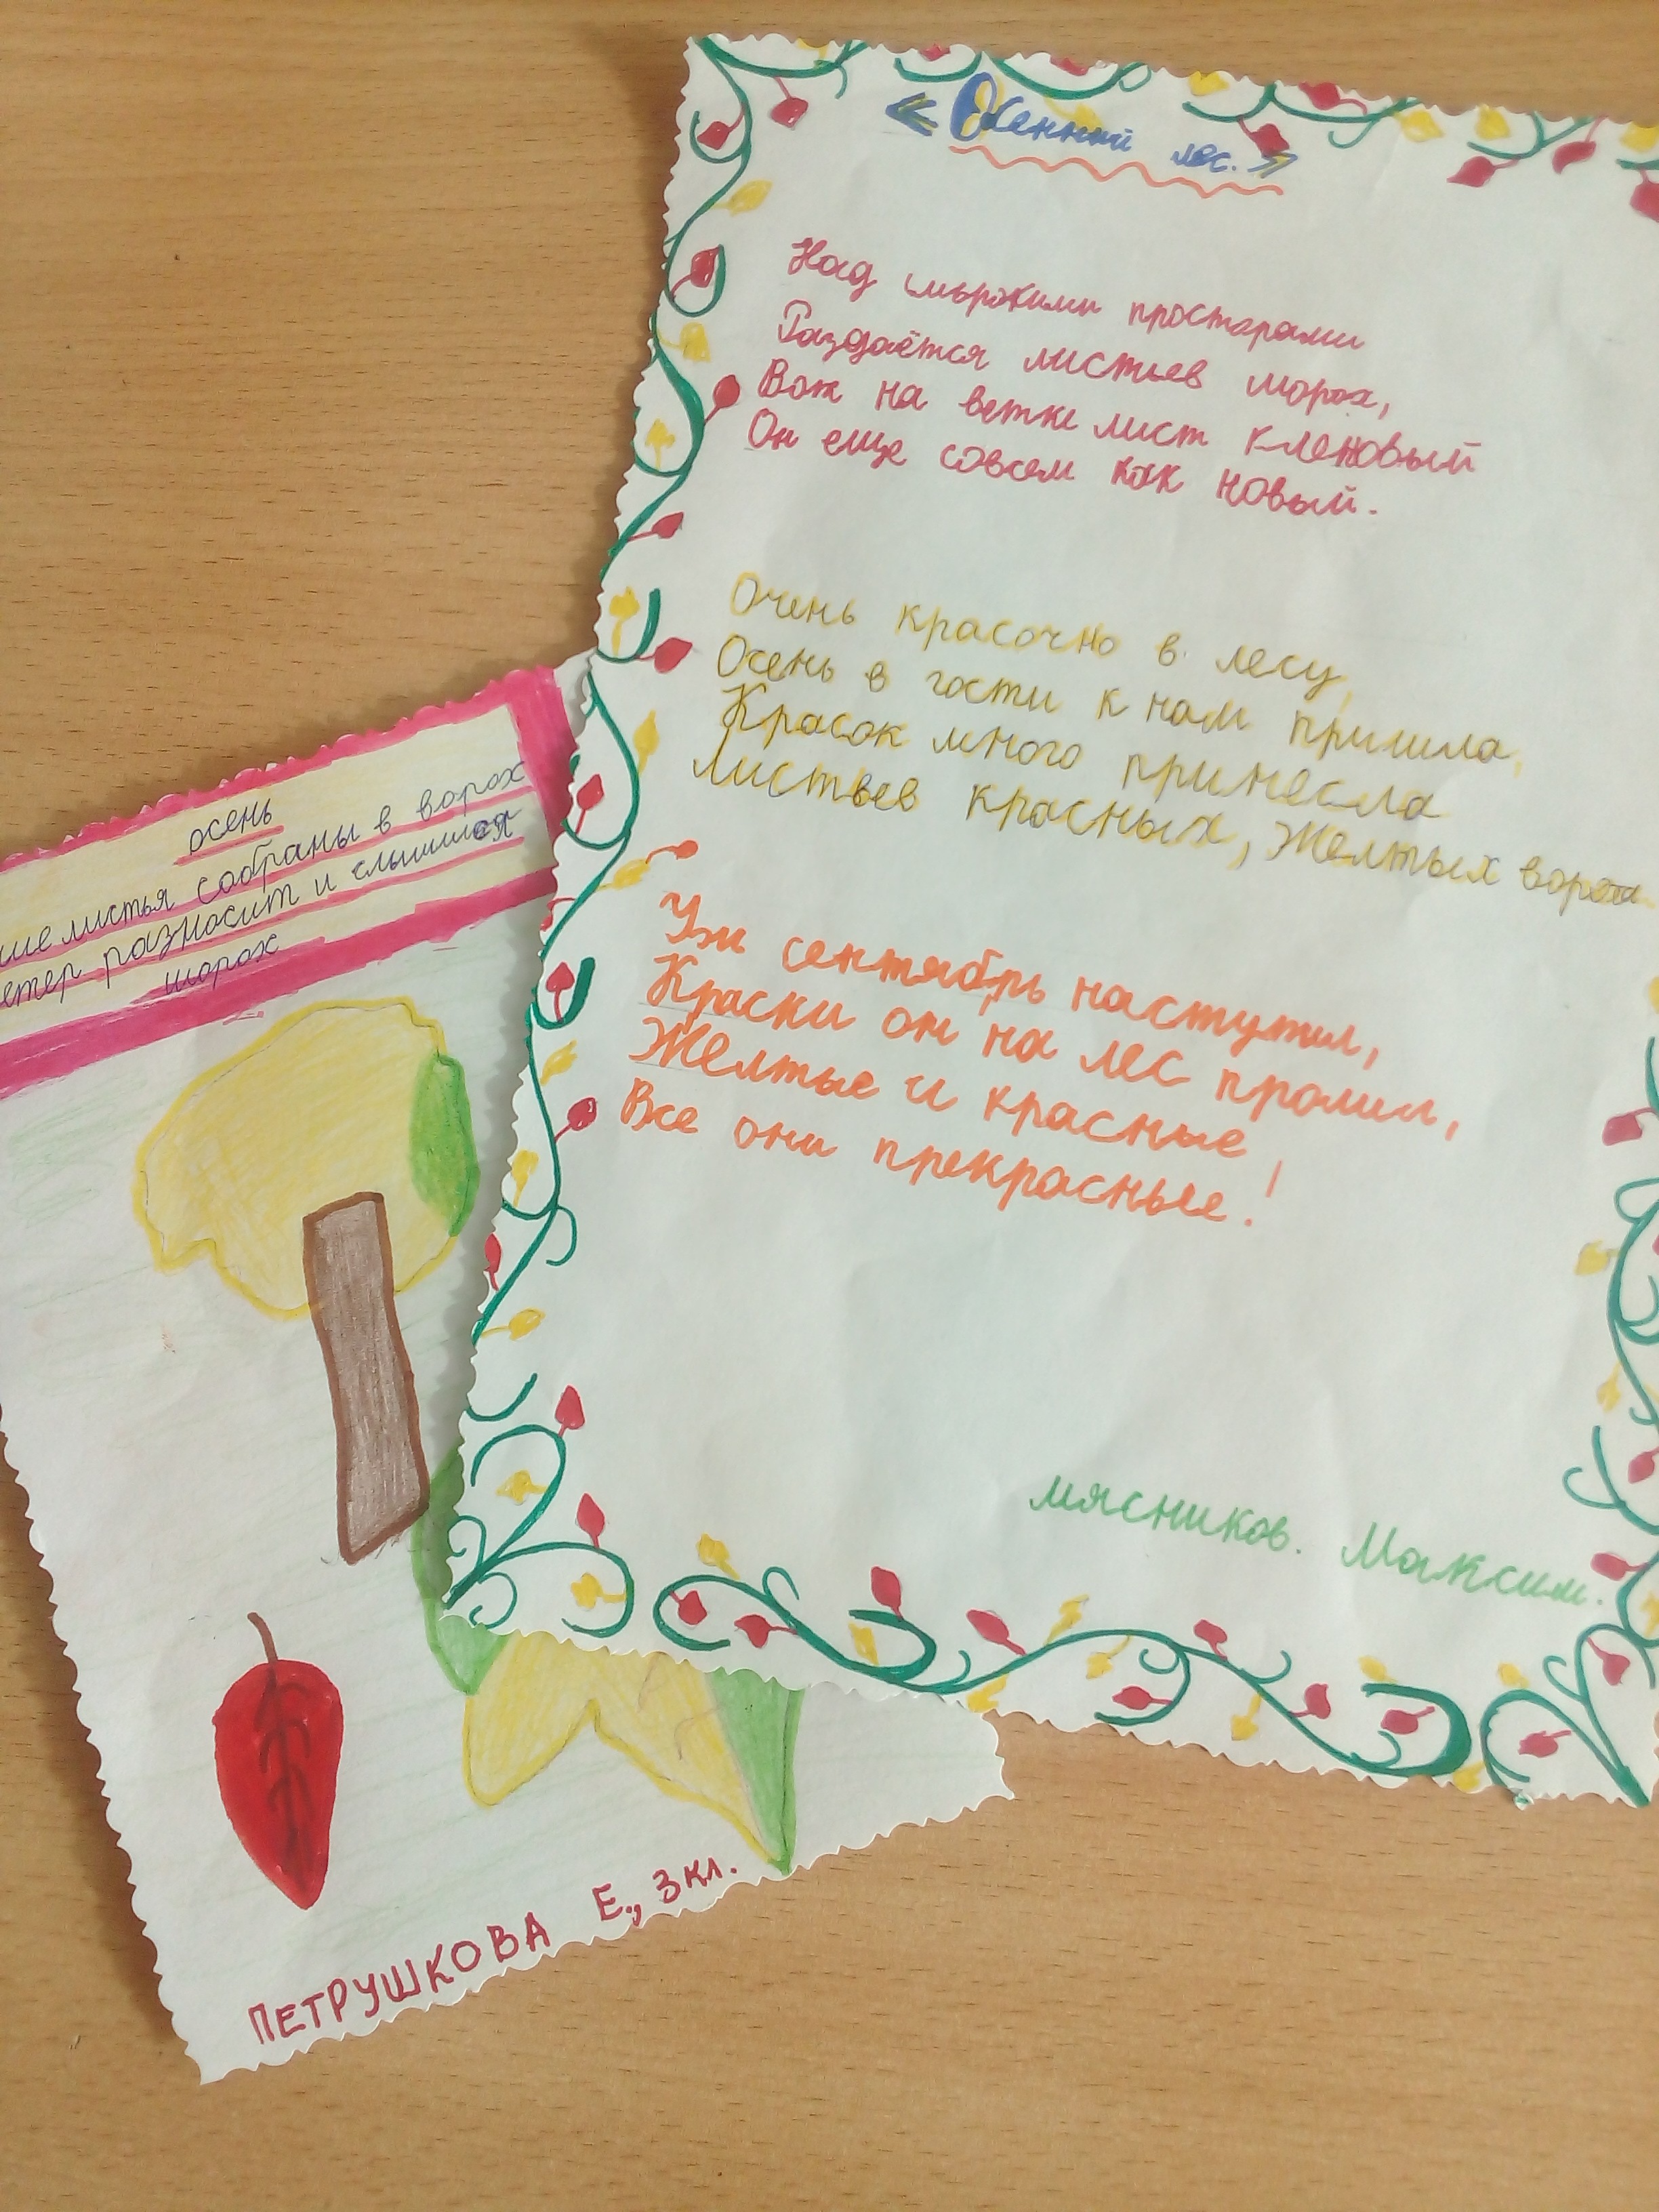 «Осенний лес.»
Над широкими просторами
Раздаётся листьев шорох,
Вот на ветке лист кленовый
Он еще совсем как новый.
Очень красочно в лесу,
Осень в гости к нам пришла,
Красок много принесла
Листьев красных, Желтых ворох.
Уж сентябрь наступил,
Краски он на лес пролил,
Желтые и красные
Все они прекрасные!
мясников. Максим.
осень
листья собраны в ворох
разносит и слышится
шорох
ПЕТРУШКОВА Е., 3 кл.